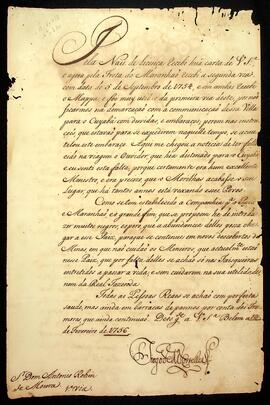 Pela Nau de licença Recebi huã carta de V. S.ª
e agora pela Frota do Maranhão recebi a segunda via
com data de 5 de Septembro de 1754, e em ambas Recebi
o Mappa, e foi muy util o da primeira via deste, por
ficarmos na demarcação com a communicação dessa Villa
para o Cuyabá com duvidas, e embaraços, porem nas ins-
trucçoens, que estavaõ para se expedirem naquelle tempo, se acau-
telou este embaraço. Aqui me chega a noticia de ter fale-
cido na viagem o Ouvidor, que hia destinado para o Cuyabá
e eu senti esta falta, porque certamente era hum excellente
Ministro, e era preciso que o se
lugar, que há tantos annos está vexando esses Povos.
Como se tem estabelecido a Companhia g.al do Pará
e Maranhaõ, e o grande fim, que se propoem he de introdu-
zir muitos negros, espero que a abundancia delles possa che-
gar a esse Paiz, para que se continuem nos descobertos das
Minas, em que tem cuidado os Mineiros, que actualmente estaõ
nesse Paiz, que por falta delles se achaõ só nas Faisqueiras
entretidos a passar a vida, e sem cuidarem na sua utilidade, nem
na da Real Fazenda.
Todas as Pessoas Reaes se achaõ com perfeita
saude, mas ainda em barracas de pannos por conta dos Tre-
mores, que ainda continuaõ. Deos g.e a V. S.ª Belem a
de Fevereiro de 1756
Diogo de Mendonça
S.r Dom Antonio Rolim
de Moura